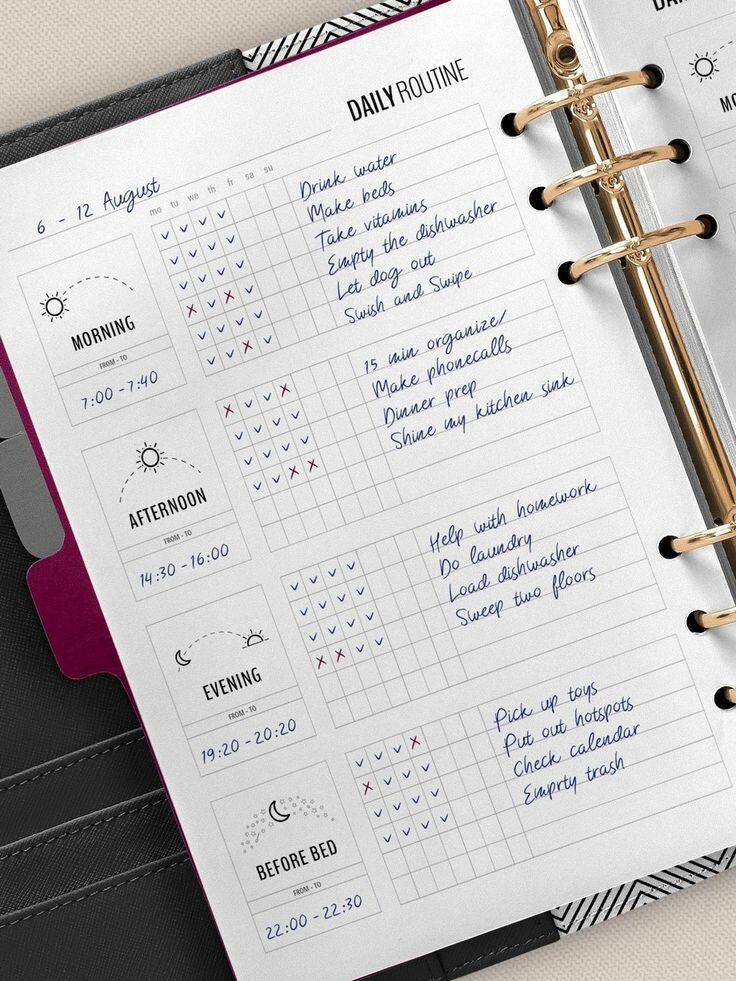 DAILY ROUTINE
6 - 12 August
mo tu we th fr sa su
MORNING
FROM - TO
7:00 - 7:40
Drink water
Make beds
Take vitamins
Empty the dishwasher
Let dog out
Swish and Swipe
AFTERNOON
FROM - TO
14:30 - 16:00
15 min organize/
Make phonecalls
Dinner prep
Shine my kitchen sink
EVENING
FROM - TO
19:20 - 20:20
Help with homework
Do laundry
Load dishwasher
Sweep two floors
BEFORE BED
FROM - TO
22:00 - 22:30
Pick up toys
Put out hotspots
Check calendar
Emprty trash